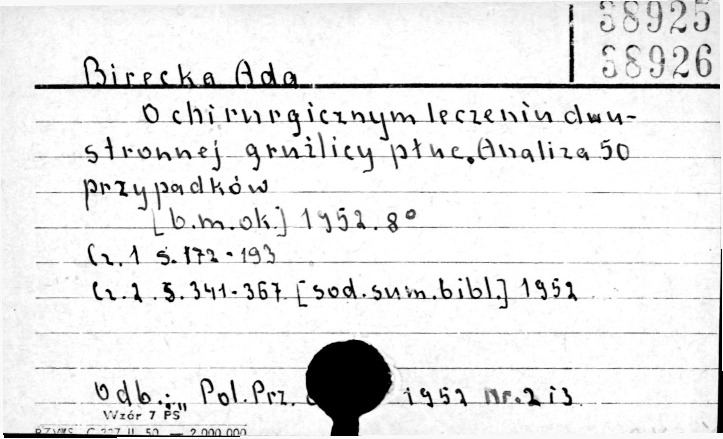 38925
38926
Birecka Ada
O chirurgicznym leczeniu dwu-
stronnej gruźlicy płuc. Analiza 50
przypadków
[b.m.ok.] 1952. 8°
Cz. 1 s. 172-193
Cz. 2 s. 341-367 [sod.sum.bibl.] 1952
Odb.: "Pol. Prz. 1952 nr. 2 i 3
Wzór 7 PS
RZWS C 227 II 50 — 2 000 000